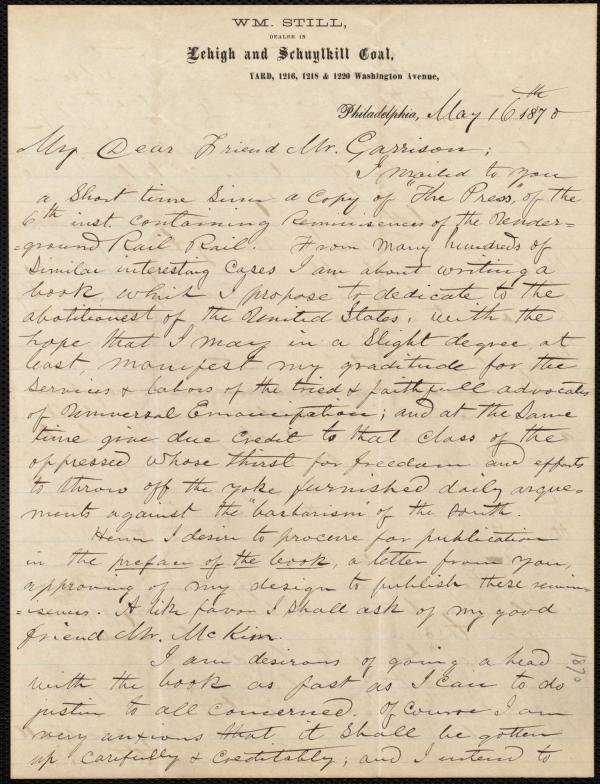 WM. STILL,
DEALER IN
Lehigh and Schuylkill Coal,
YARD, 1216, 1218 & 1220 Washington Avenue,
Philadelphia, May 16th 1870
My Dear Friend Mr. Garrison;
I mailed to you
a short time since a copy of "The Press," of the
6th inst. containing reminisences of the Under=
=ground Rail Rail. From many hundreds of
similar interesting cases I am about writing a
book, which I propose to dedicate to the
abolitionest of the United States, with the
hope that I may in a slight degree, at
least, manifest my gratitude for the
services & labors of the tried & faithfull advocates
of Unniversal Emancipation; and at the same
time give due credit to that class of the
oppressed whose thirst for freedom and efforts
to throw off the yoke furnished daily argue=
ments against the "barbarism" of the South.
Hence I desire to procure for publication
in the preface of the book, a letter from you,
approving of my design to publish these remin=
=isences. A like favor I shall ask of my good
friend Mr. McKim.
I am desirous of going a head
with the book as fast as I can to do
justice to all concerned. Of course I am
very anxious that it shall be gotten
up carefully & creditably; and I intend to
1870